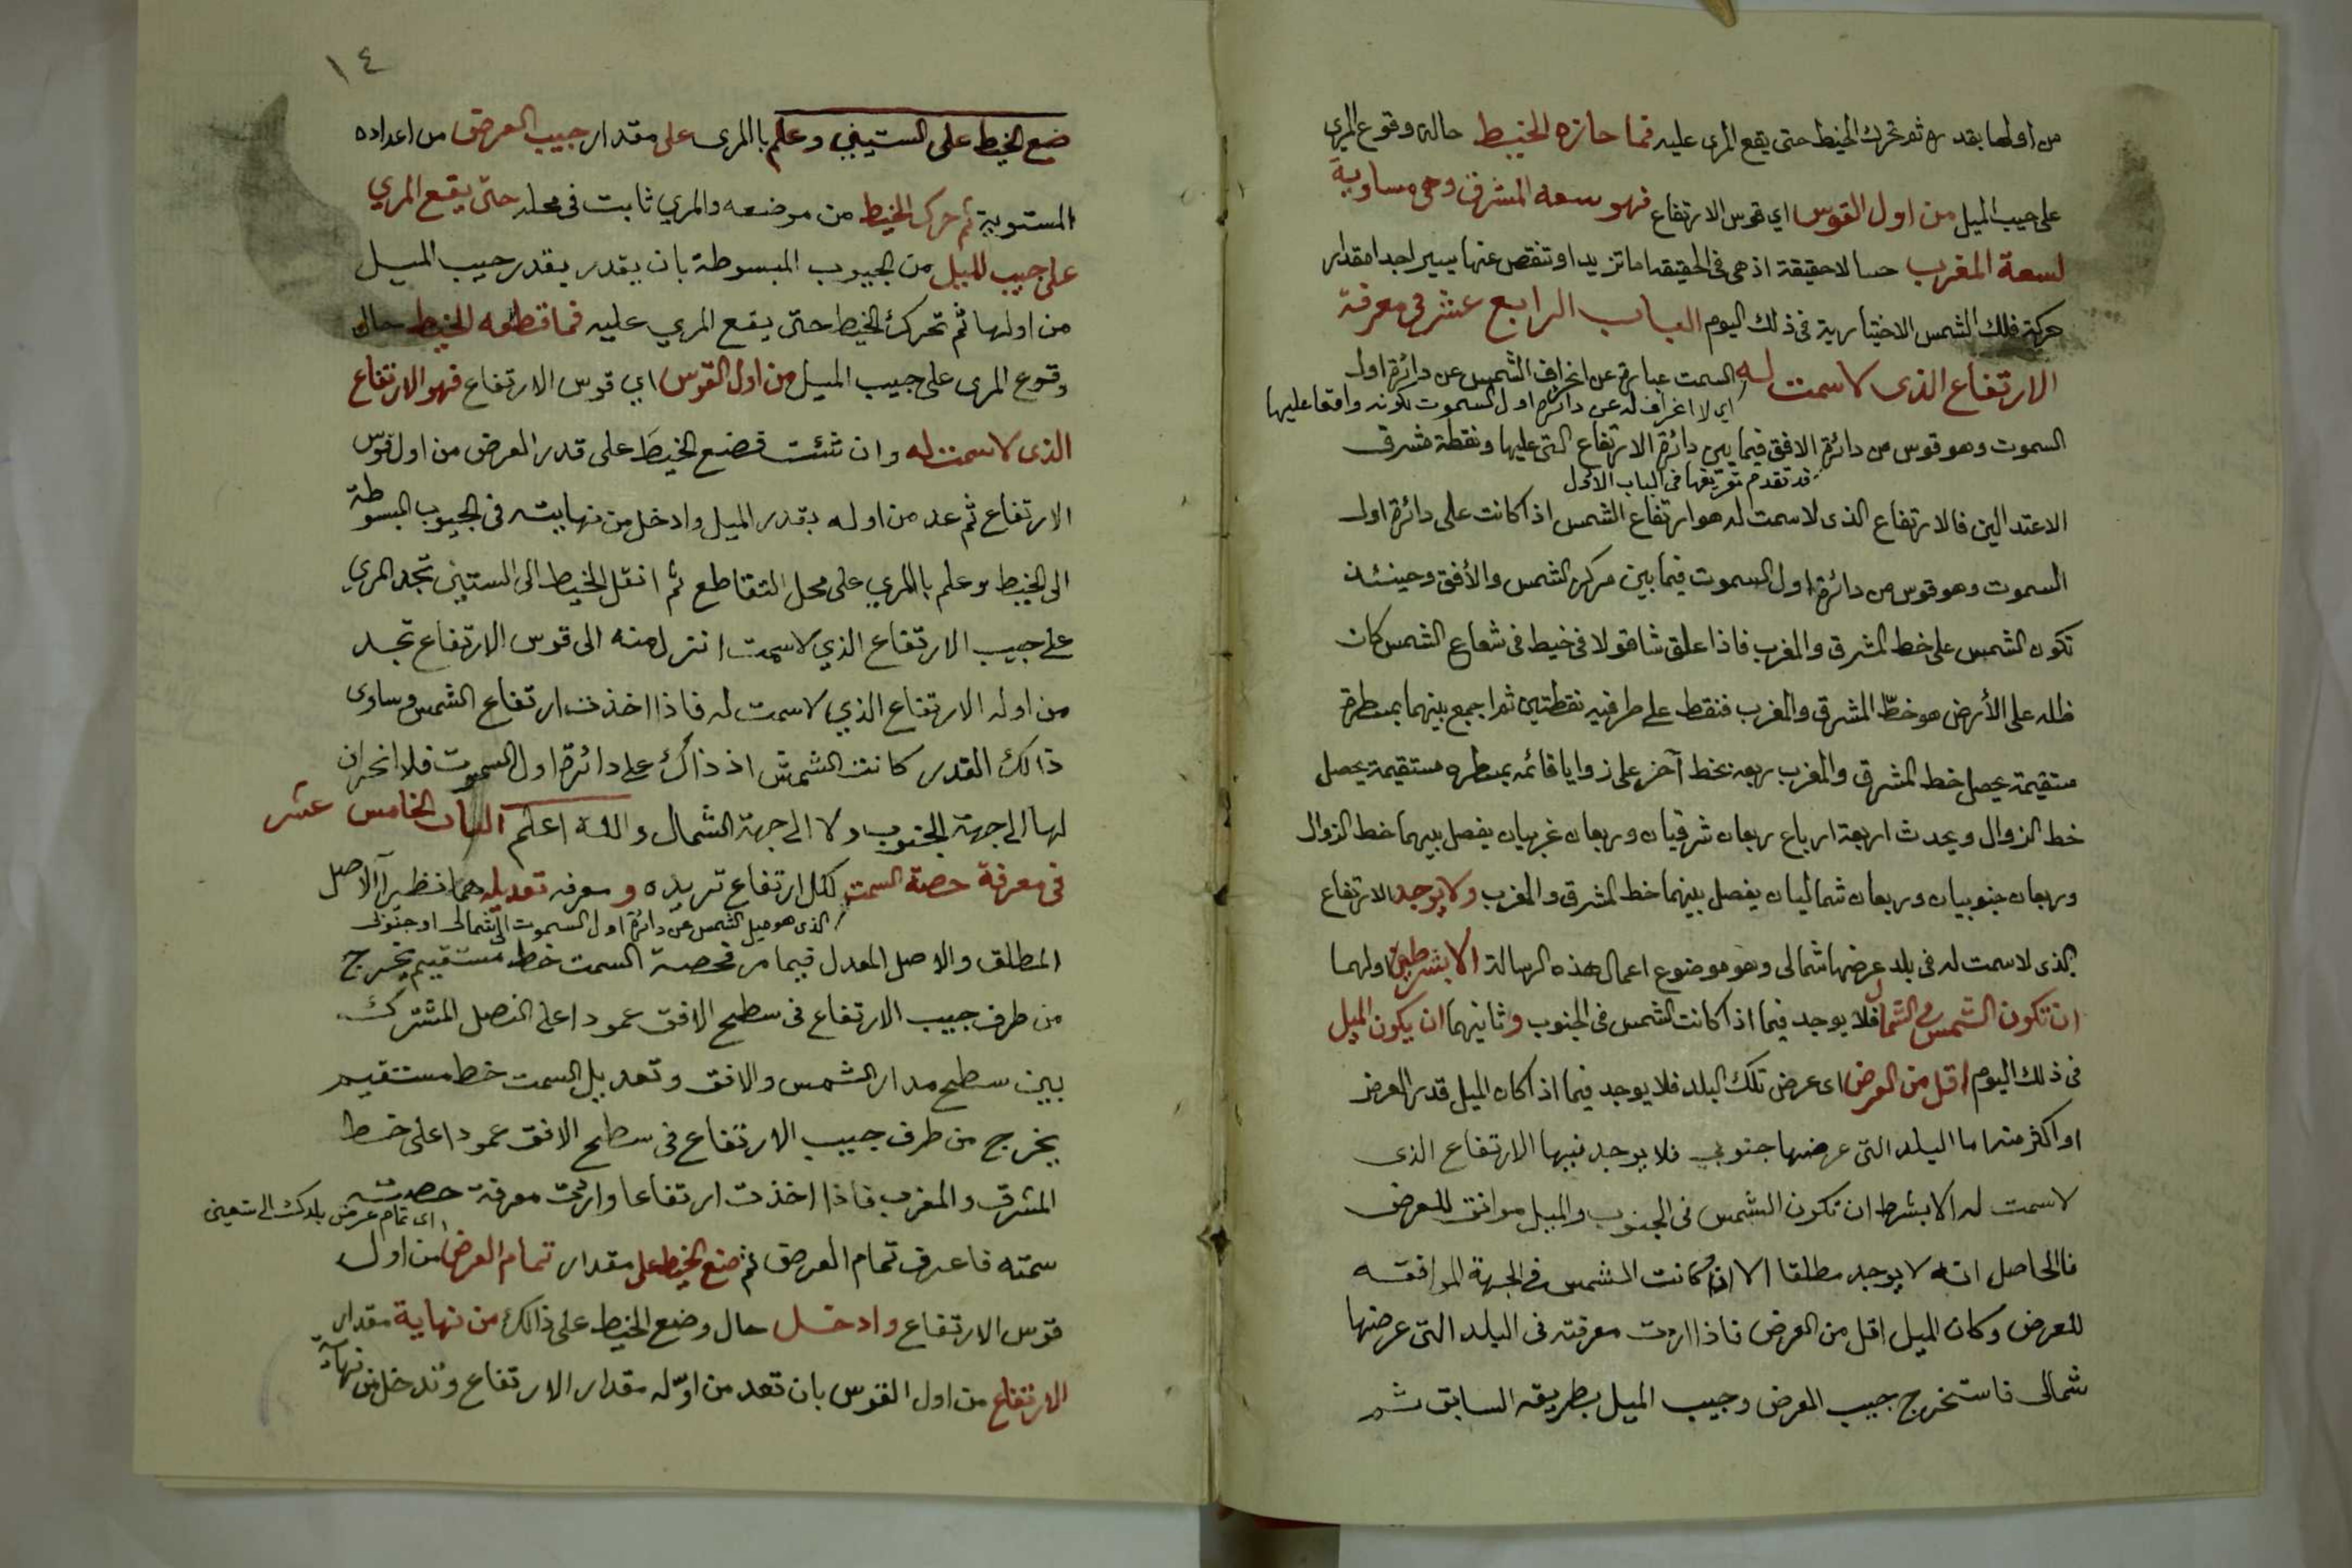 من اولها بقدره ثم تحرك الخيط حتى يقع المري عليه فما حازه الخيط حالة وقوع المري
على جيب الميل من اول القوس اي قوس الارتفاع فهو سعه المشرق وهى مساوية
لسعة المغرب حسا لا حقيقة اذ هى فى الحقيقه اما تزيد او تنقص عنها بيسير احدا مقدار
حركة فلك الشمس الاختيارية فى ذلك اليوم الباب الرابع عشر فى معرفة
الارتفاع الذى لا سمت له السمت عبارة عن انحراف الشمس عن دائرة اول
اي لا انحراف له عن دائرة اول السموت لكونه واقعا عليها
السموت وهو قوس من دائرة الافق فيما بين دائرة الارتفاع التى عليها ونقطة مشرق
قد تقدم تعريفها فى الباب الاول
الاعتدالين فالارتفاع الذى لا سمت له هو ارتفاع الشمس اذا كانت على دائرة اول
السموت وهو قوس من دائرة اول السموت فيما بين مركز الشمس والأفق وحينئذ
تكون الشمس على خط المشرق والمغرب فاذا علق شاقولا فى خيط فى شعاع الشمس كان
ظله على الأرض هو خطّ المشرق والمغرب فنقط على طرفيه نقطتين ثم اجمع بينهما بمسطرة
مستقيمة يحصل خط المشرق والمغرب ربعه بخط آخر على زوايا قائمه بمسطره مستقيمة يحصل
خط الزوال ويحدث اربعة ارباع ربعان شرقيان وربعان غربيان يفصل بينهما خط الزوال
وربعان جنوبيان وربعان شماليان يفصل بينهما خط المشرق والمغرب ولا يوجد الارتفاع
الذى لا سمت له فى بلد عرضها شمالى وهو موضوع اعمال هذه الرسالة الا بشرطين اولهما
ان تكون الشمس فى الشمال فلا يوجد فيما اذا كانت الشمس فى الجنوب وثانيهما ان يكون الميل
فى ذلك اليوم اقل من العرض اى عرض تلك البلد فلا يوجد فيما اذا كان الميل قدر العرض
او اكثر منه اما البلد التى عرضها جنوبي فلا يوجد فيها الارتفاع الذى
لا سمت له الا بشرط ان تكون الشمس فى الجنوب والميل موافق للعرض
فالحاصل انه لا يوجد مطلقا الا ان كانت الشمس فى الجهة الموافقه
للعرض وكان الميل اقل من العرض فاذا اردت معرفته فى البلد التى عرضها
شمالى فاستخرج جيب العرض وجيب الميل بطريقه السابق ثم
١٤
ضع الخيط على الستيني وعلم باالمرى على مقدار جيب العرض من اعداده
المستوية ثم حرك الخيط من موضعه والمري ثابت فى محله حتى يقع المري
على جيب الميل من الجيوب المبسوطة بان يقدر بقدر جيب الميل
من اولها ثم تحرك الخيط حتى يقع المري عليه فما قطعه الخيط حال
وقوع المرى على جيب الميل من اول القوس اي قوس الارتفاع فهو الارتفاع
الذى لا سمت له وان شئت فضع الخيطَ على قدر العرض من اول قوس
الارتفاع ثم عد من اوله بقدر الميل وادخل من نهايته فى الجيوب المبسوطة
الى الخيط وعلم باالمري على محل التقاطع ثم انقل الخيط الى الستيني تجد المري
على جيب الارتفاع الذي لا سمت انزل منه الى قوس الارتفاع تجد
من اوله الارتفاع الذي لا سمت له فاذا اخذت ارتفاع الشمس وساوى
ذالك القدر كانت الشمش اذ ذاك على دائرة اول السموت فلا انحراف
لها الى جهة الجنوب ولا الى جهة الشمال والله اعلم الباب الخامس عشر
فى معرفة حصة السمت لكل ارتفاع تريده ومعرفه تعديله هما نظيرا الاصل
الذى هو ميل الشمس عن دائرة اول السموت الى شمالى او جنوبى
المطلق والاصل المعدل فيما مر فحصة السمت خط مستقيم يخرج
من طرف جيب الارتفاع فى سطح الافق عمودا على الفصل المشترك
بين سطح مدار الشمس والافق وتعديل السمت خط مستقيم
يخرج من طرف جيب الارتفاع فى سطح الافق عمودا على خط
المشرق والمغرب فاذا اخذت ارتفاعا واردت معرفة حصة
اى تمام عرض بلدك الى تسعين
سمته فاعرف تمام العرض ثم ضع الخيط على مقدار تمام العرض من اول
قوس الارتفاع وادخل حال وضع الخيط على ذالك من نهاية مقدار
الارتفاع من اول القوس بان تعد من اوّله مقدار الارتفاع وتدخل من نهاية